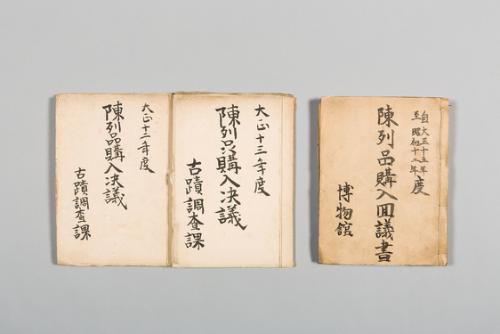 自大正十五年
至昭和十八年度
陳列品購入回議書
博物館
大正十三年度
陳列品購入決議
古蹟調査課
大正十二年度
陳列品購入決議
古蹟調査課